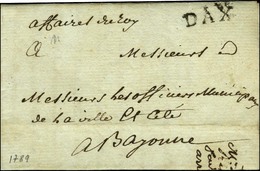 DAX
affaires du roy
A Messieurs
Messieurs les officiers Municipaux
de la ville Et Cité
a Bayonne
1789